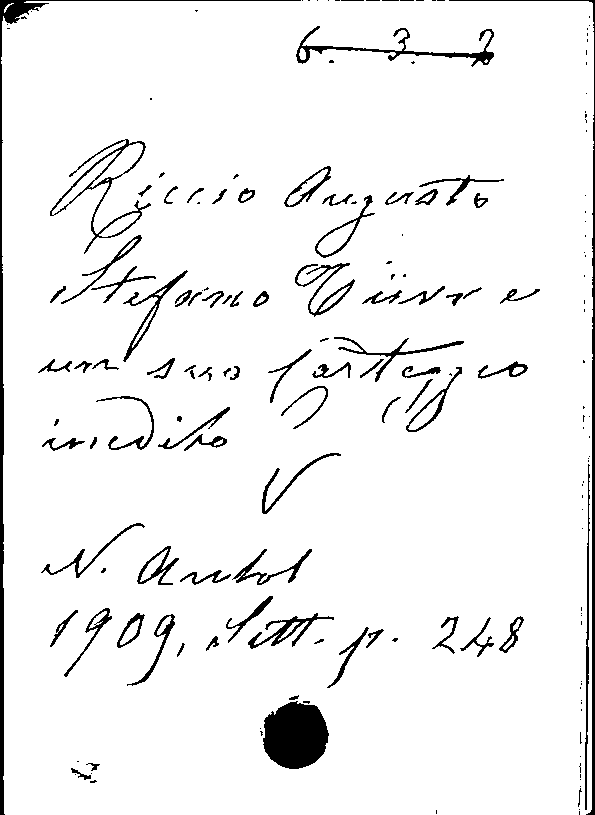 6. 3. 2
Riccio Augusto
Stefano Türr e
un suo carteggio
inedito
V
N. Antol
1909, Sett. p. 248